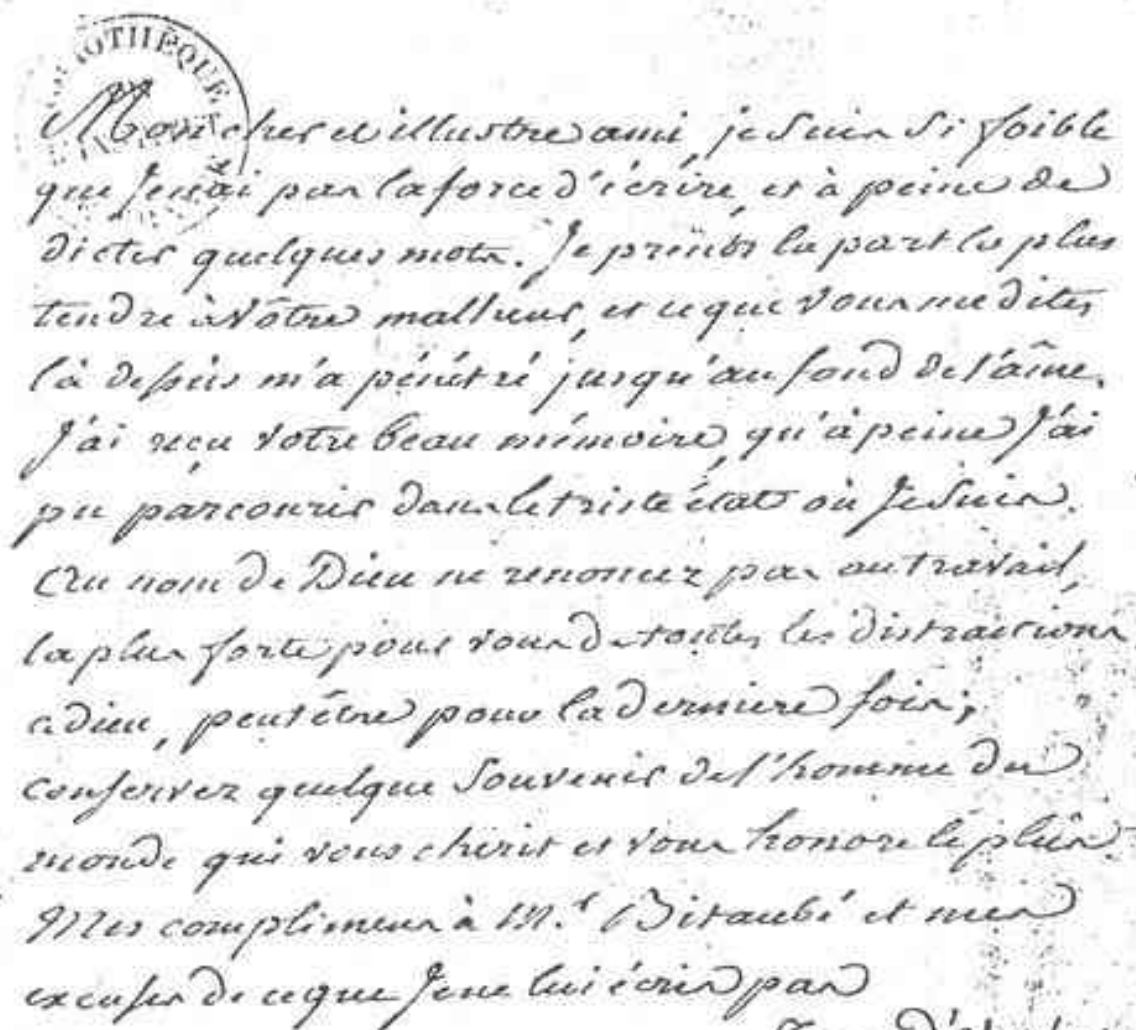 OTHÈQUE
Mon cher et illustre ami, je suis si foible
que Je n'ai pas la force d'écrire, et à peine de
dicter quelques mots. Je prends la part la plus
tendre à vôtre malheur, et ce que vous me dites
là dessus m'a pénétré jusqu'au fond de l'âme.
J'ai reçu votre beau mémoire, qu'à peine J'ai
pu parcourir dans le triste état où Je Suis.
Au nom de Dieu ne renoncez pas au travail,
la plus forte pour vous de toutes les distractions
adieu, peutêtre pour la derniere fois;
conservez quelque Souvenir de l'homme du
monde qui vous cherit et vous honore le plus.
Mes complimens à M.r Bitaubé et mes
excuses de ce que Je ne lui écris pas